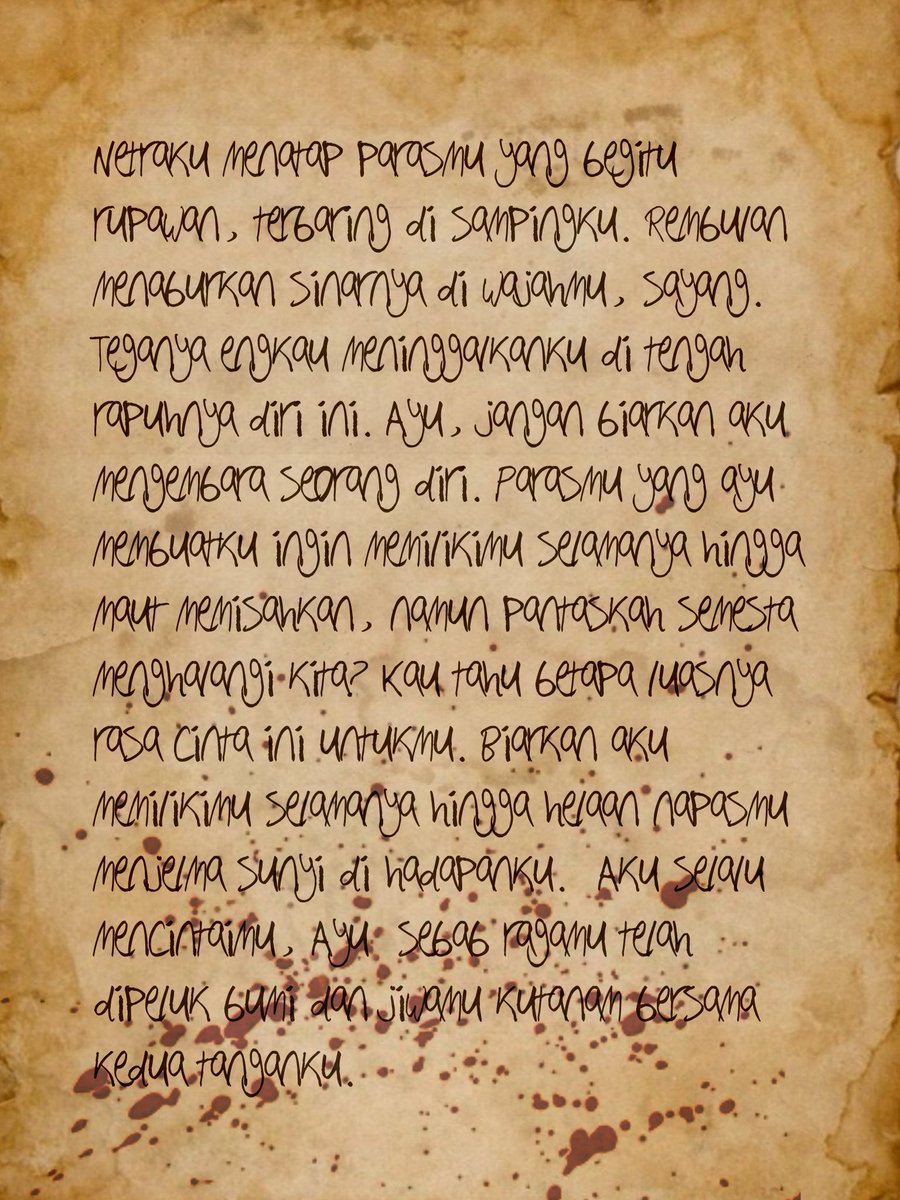 Netraku menatap parasmu yang begitu
rupawan, terbaring di sampingku. Rembulan
menaburkan sinarnya di wajahmu, sayang.
Teganya engkau meninggalkanku di tengah
rapuhnya diri ini. Ayu, jangan biarkan aku
mengembara seorang diri. Parasmu yang ayu
membuatku ingin memilikimu selamanya hingga
maut memisahkan, namun pantaskah semesta
menghalangi kita? Kau tahu betapa luasnya
rasa cinta ini untukmu. Biarkan aku
memilikimu selamanya hingga helaan napasmu
menjelma sunyi di hadapanku. Aku selalu
mencintaimu, Ayu sebab ragamu telah
dipeluk bumi dan jiwamu kutanam bersama
kedua tanganku.